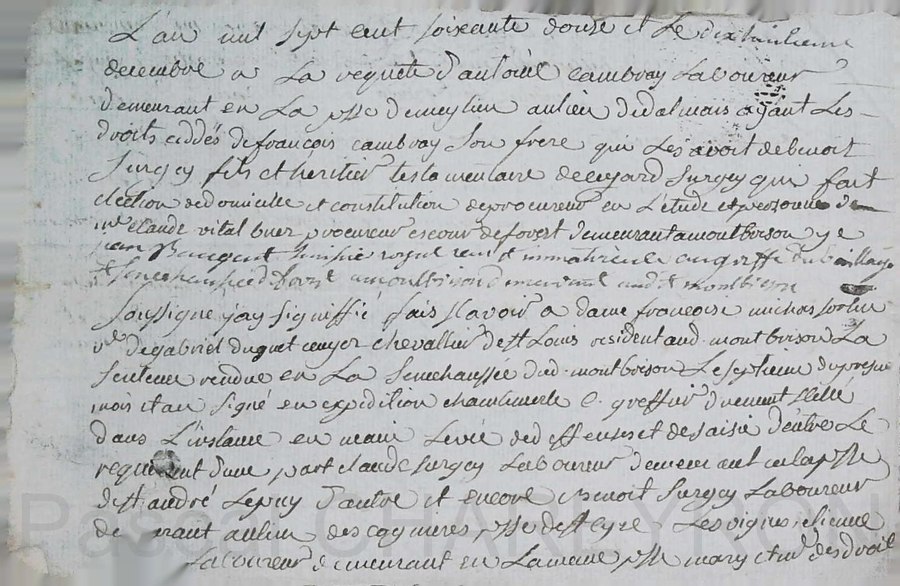 L'an mil sept cent soixante douze et le dixhuitieme
decembre a La requete d'antoine Cambray Laboureur
demeurant en La psse demeylieu au lieu dedalmais ayant Les
droits ceddés defrançois cambray Son frere qui Les avoit debenoit
Surgey fils et héritier testamentaire de Surgey qui fait
élection dedomicille et constitution deprocureur en L'étude et personne de
me claude vital buer procureur es cour deforest demeurant a montbrison je
huissier royal immatriculé au greffe du baillage
et senechaussée deforest a montbrison demeurant aud montbrison
Soussigné jay signiffié fais sçavoir a dame françoise michas
ve degabriel duguet ecuyer chevallier de st Louis resident aud. montbrison La
sentence rendue en La Senechaussée dud. montbrison Le septieme dupresent
mois et an signé en expedition greffier duement scellé
dans L'instance en main Levée ded effenses et de saisie d'entre Le
requerant d'une part claude Surgey Laboureur demeurant en la psse
de st andré Lepuy d'autre et encore Benoit Surgey Laboureur
demeurant au lieu des psse de Les vignes, etienne
Laboureur demeurant en La meme psse mary et me des droits
Pascal CHARLEYRON